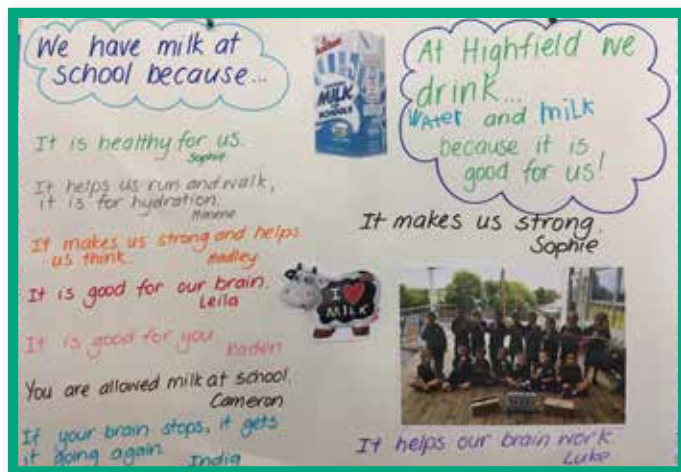 We have milk at
school because...
It is healthy for us.
Sophie
It helps us run and walk,
it is for hydration.
It makes us strong and helps
us think. Hadley
It is good for our brain.
Leila
It is good for you.
Kaden
You are allowed milk at school.
Cameron
If your brain stops, it gets
it going again.
India
MILK
SCHOOLS
I
MILK
At Highfield we
drink...
Water and milk
because it is
good for us!
It makes us strong.
Sophie
It helps our brain work
Luke